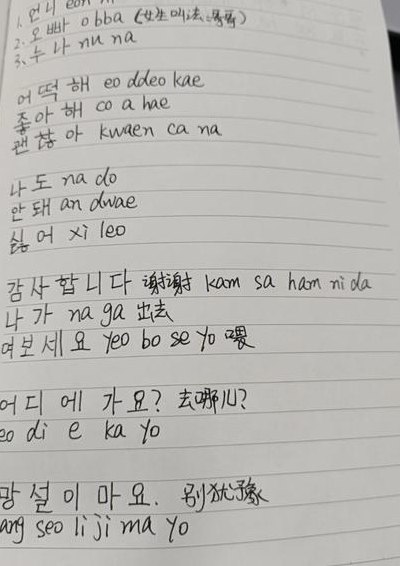 1. 언니 eon
2. 오빠 obba (女生叫法: 哥哥)
3. 누나 nu na
어떡해 eo ddeo kae
좋아해 co a hae
괜찮아 kwaen ca na
나도 na do
안돼 an dwae
싫어 xi leo
감사합니다 谢谢 kam sa ham ni da
나가 na ga 出去
여보세요 yeo bo se yo 喂
어디에 가요? 去哪儿?
eo di e ka yo
망설이마요. 别犹豫
ang seo li ji ma yo